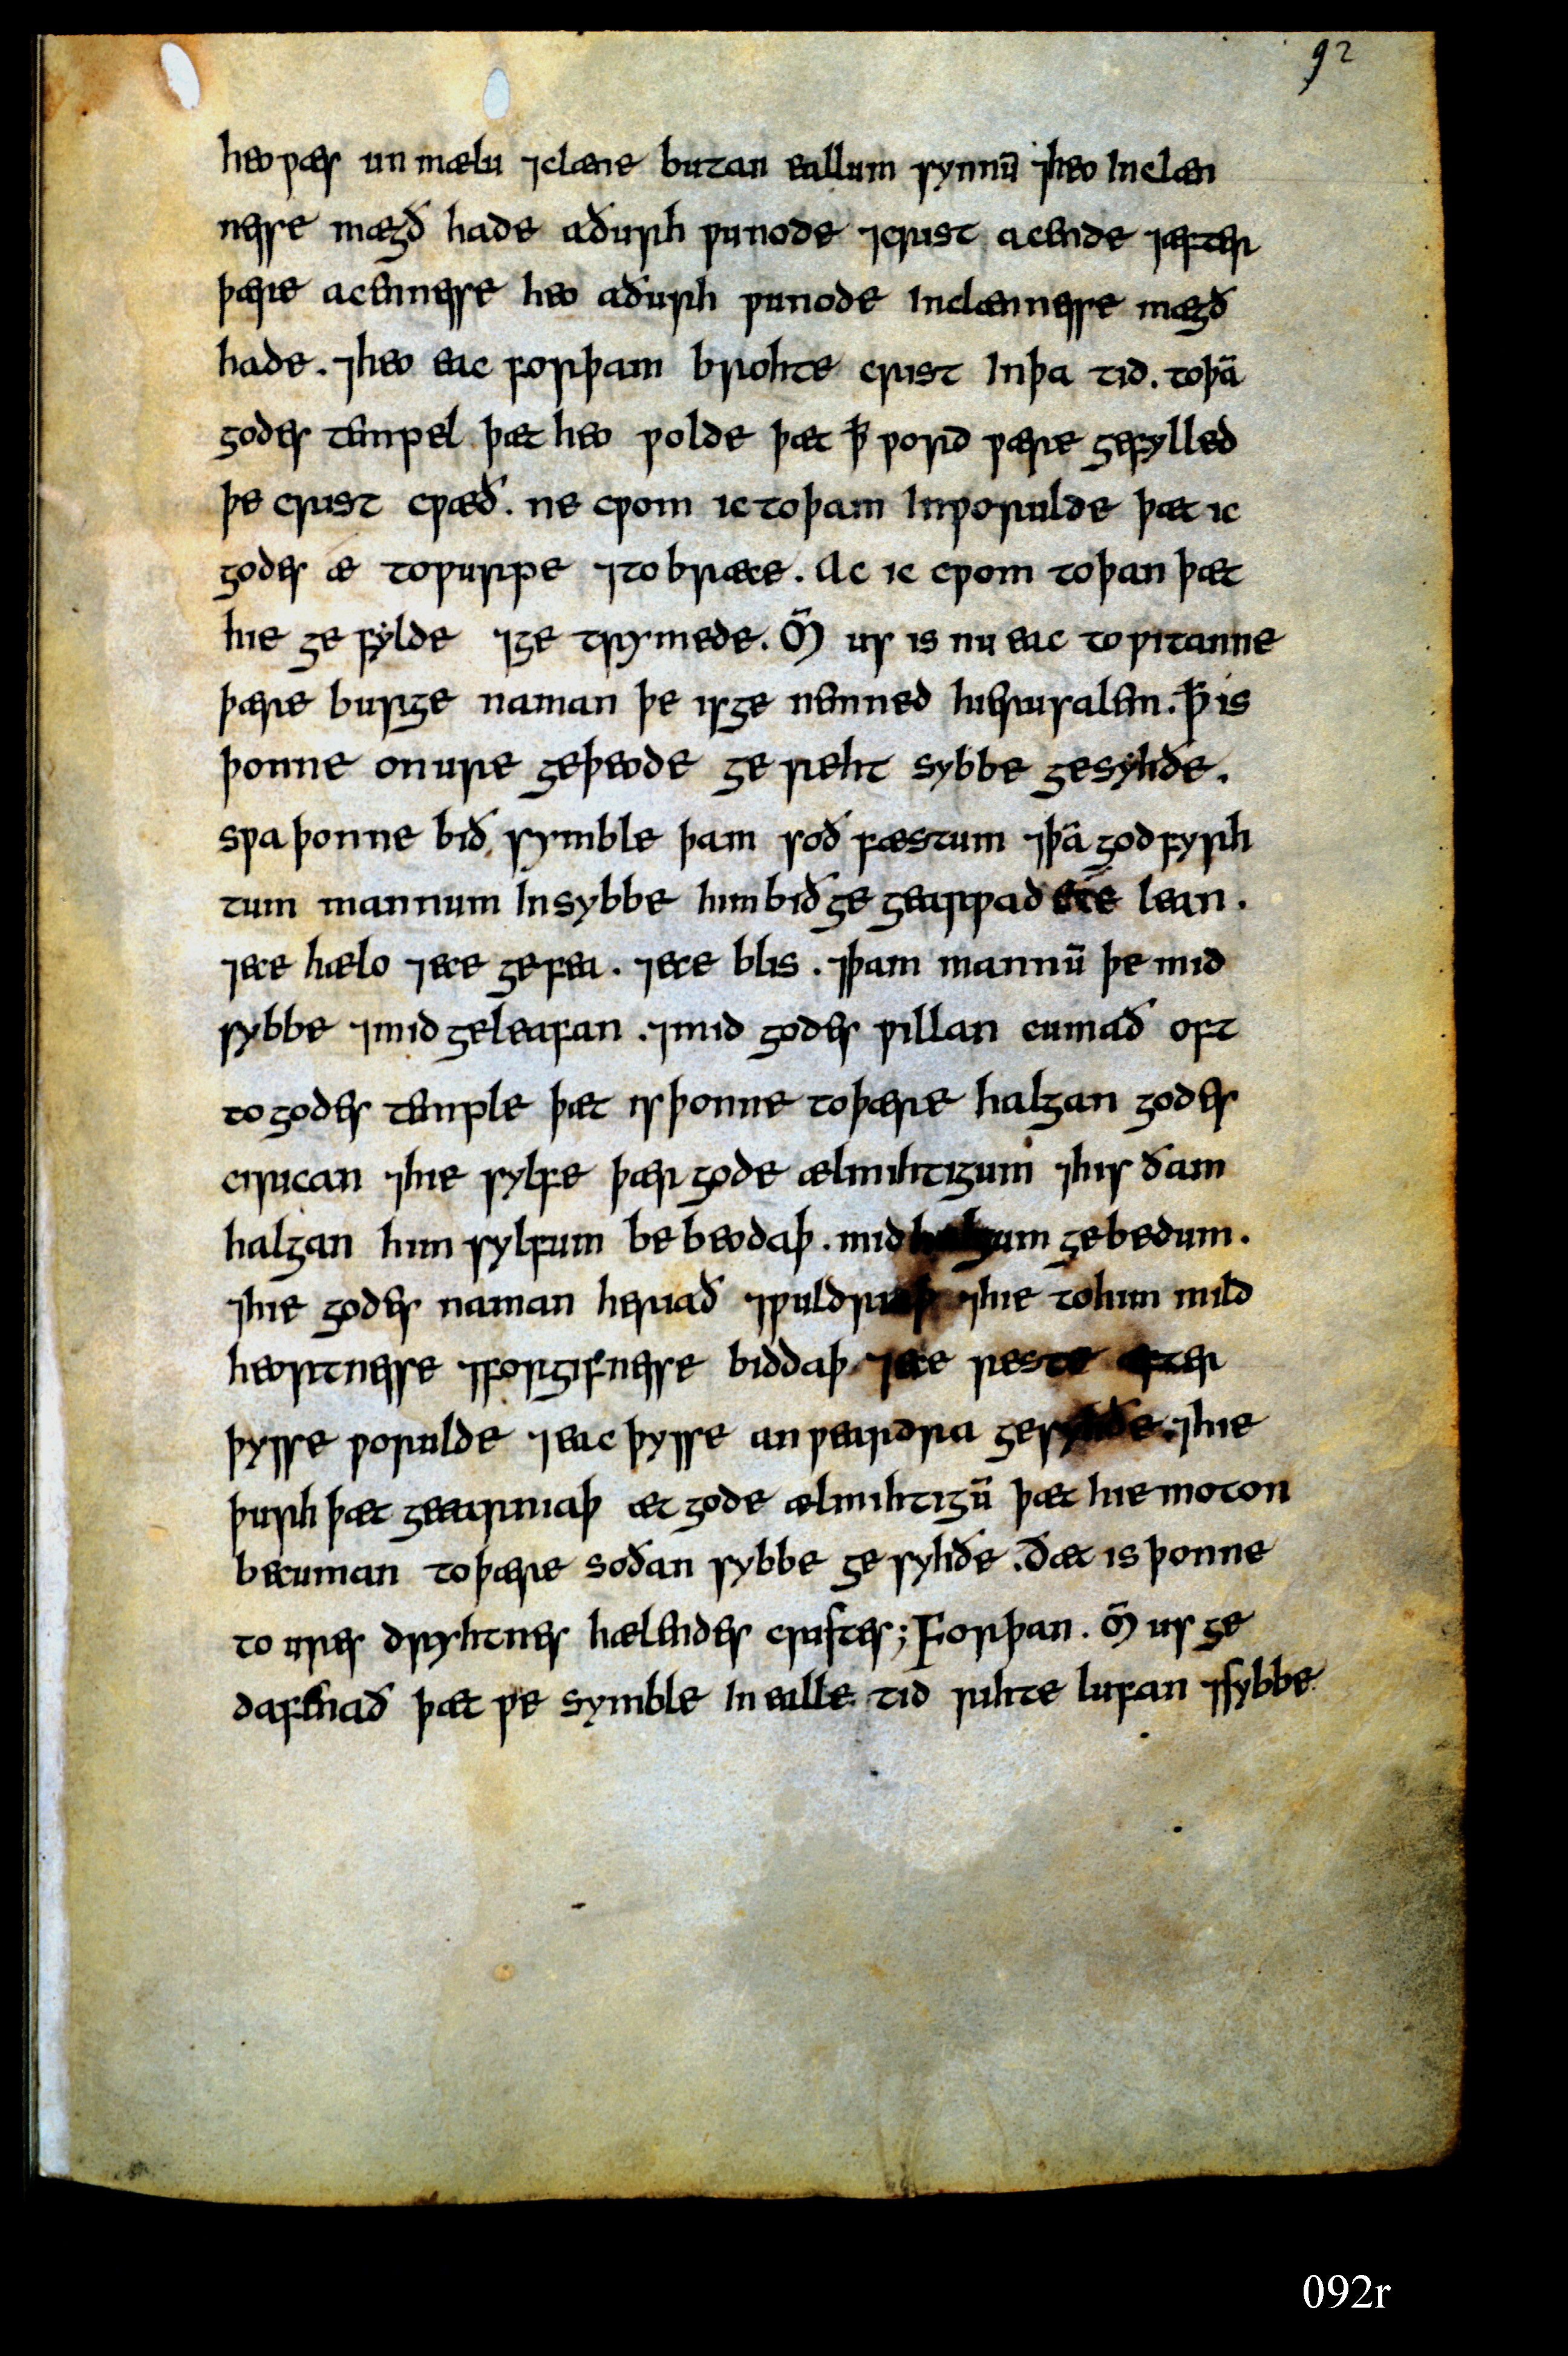 92
heo ƿæs un mælu ⁊clæne butan eallum synnū ⁊heo In clæn
nesse mægð hade aðurh ƿunode ⁊crist acende ⁊æfter
þære acennesse heo aðurh ƿunode Inclænnesse mægð
hade. ⁊heo eac forþam brohte crist Inþa tid. toþā
godes tempel þæt heo ƿolde þæt ꝥ ƿord ƿære gefylled
þe crist cƿæð. ne cƿom ic toþam Inƿorulde þæt ic
godes æ toƿurpe ⁊tobræce. Ac ic cƿom toþan þæt
hie ge fylde ⁊ge trymede. M̄ us is nu eac to ƿitanne
þære burge naman þe is ge nemned hierusalem. ꝥ is
þonne on ure geþeode ge reht sybbe gesyhðe.
sƿa þonne bið symble þam soð fæstum ⁊þā god fyrh
tum mannum In sybbe him bið ge gearƿad ece lean.
⁊ece hælo ⁊ece gefea. ⁊ece blis. ⁊þam mannū þe mid
sybbe ⁊mid geleafan. ⁊mid godes ƿillan cumað oft
to godes temple þæt is þonne toþære halgan godes
cirican ⁊hie sylfe þær gode ælmihtigum ⁊his ðam
halgan him sylfum be beodaþ. mid halgum gebedum.
⁊hie godes naman heriað ⁊ƿuldriaþ ⁊hie to him mild
heortnesse ⁊forgifnesse biddaþ ⁊ece reste æfter
þysse ƿorulde ⁊eac þysse anƿeardra gesyhðe. ⁊hie
þurh þæt geearniaþ æt gode ælmihtigū þæt hie moton
becuman toþære soðan sybbe ge syhðe. ðæt is þonne
to ures dryhtnes hælendes cristes; Forþan. M̄ us ge
dafenað þæt ƿe symble In ealle tid rihte lufan ⁊sybbe
092r